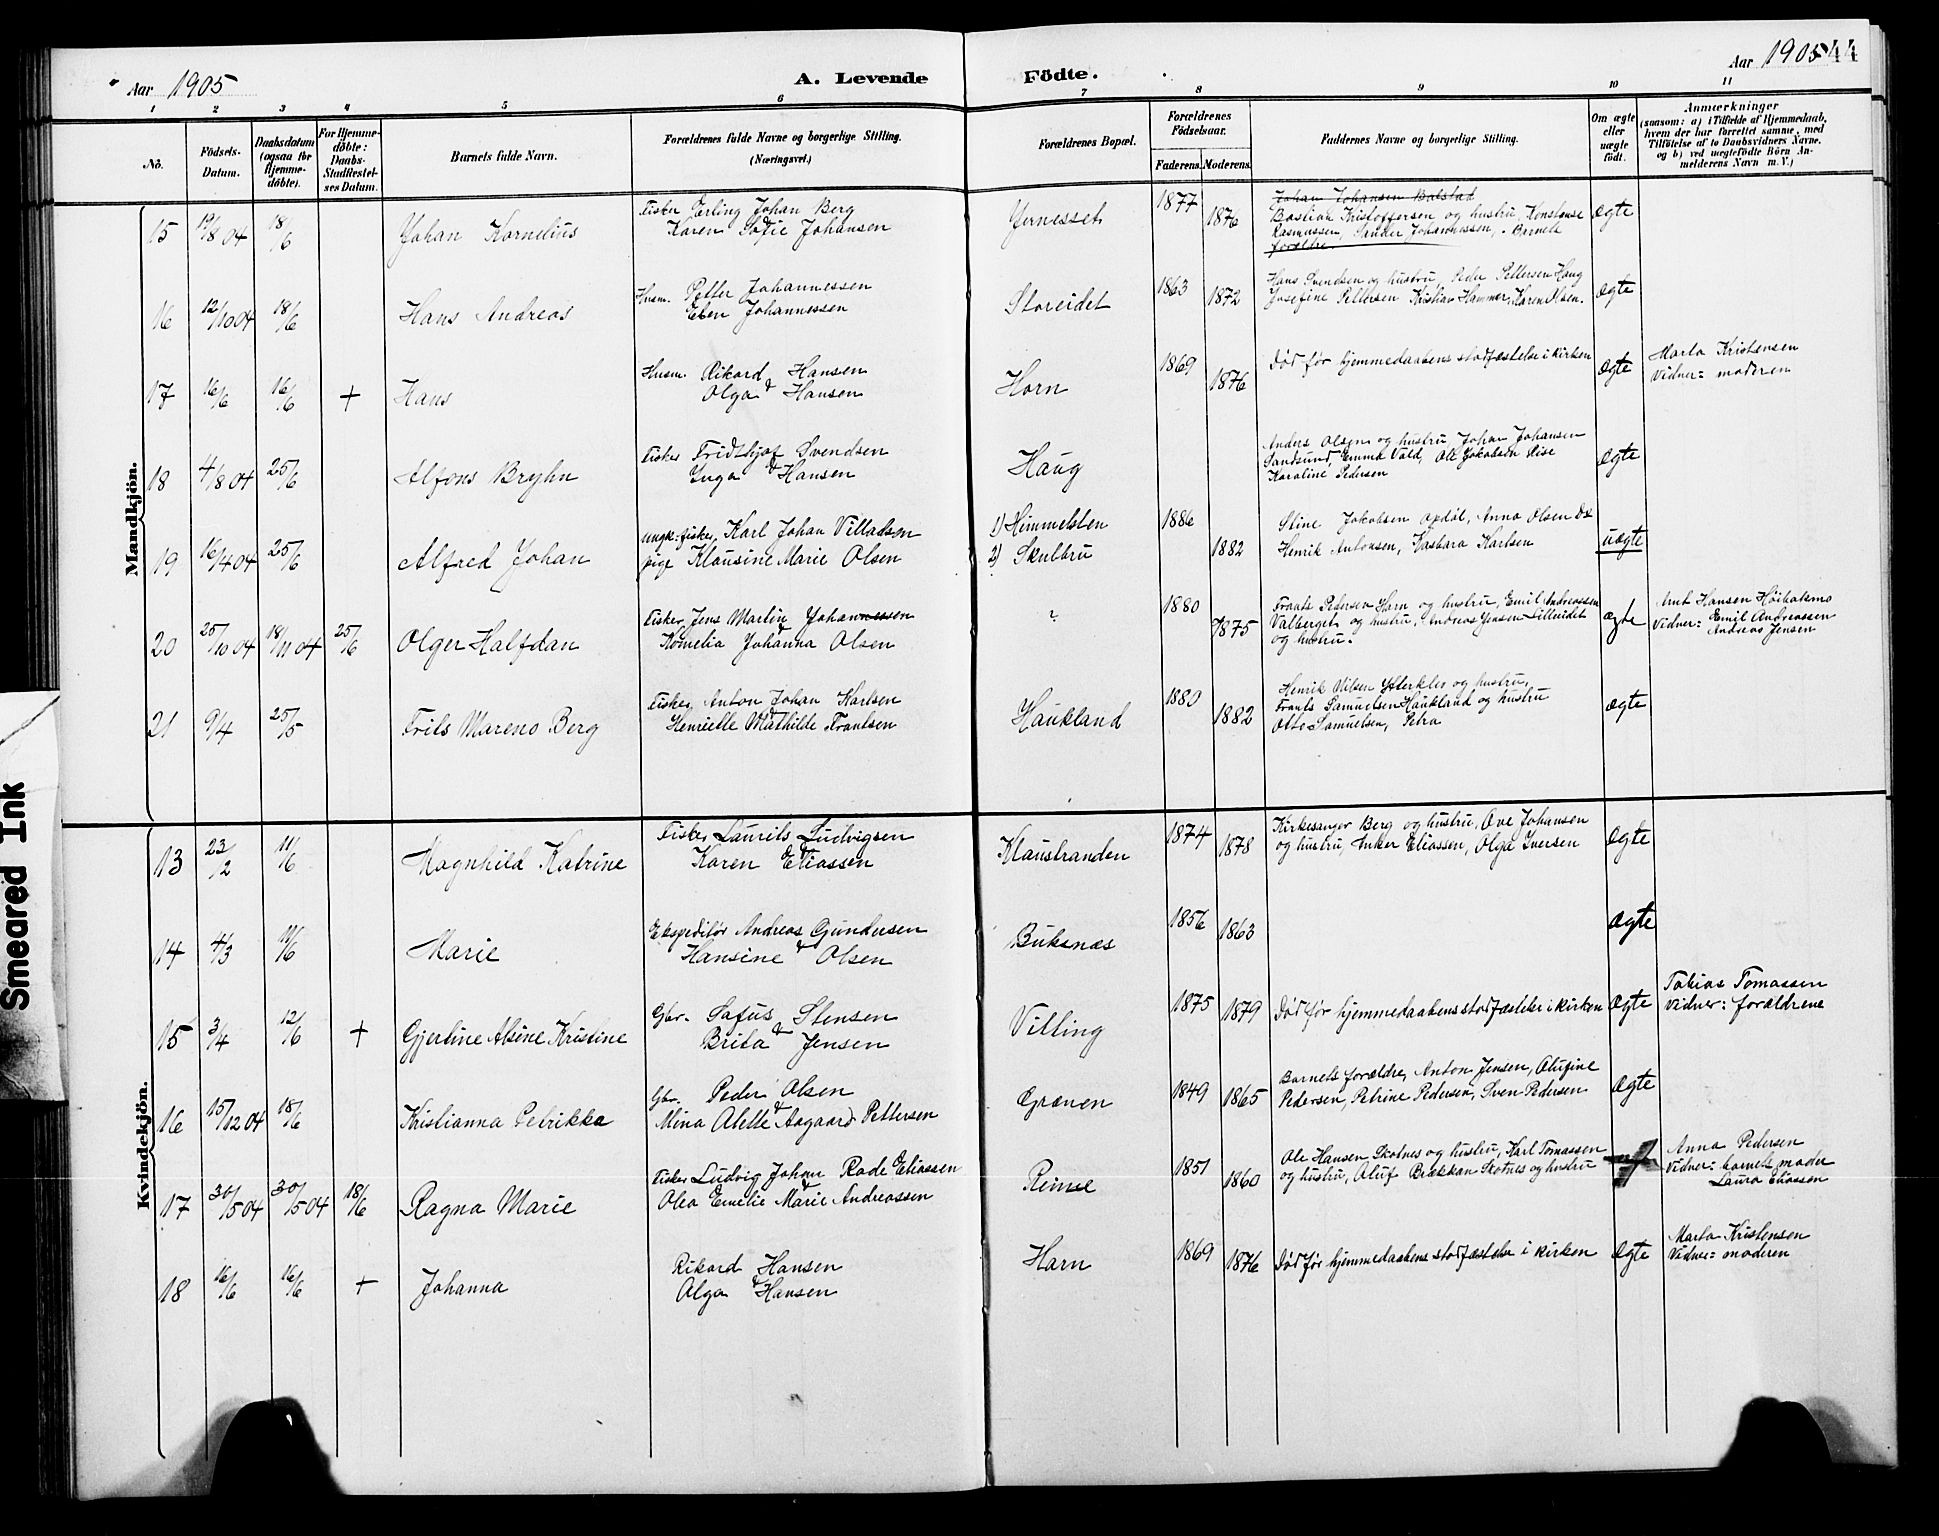 Aar 1905
A. Levende Födte.
Aar 1905 44
1 2 3 4 5 6 7 8 9 10 11
No.
Födsels-Datum.
Daabsdatum (ogsaa for Hjemme-döbte).
For Hjemme-döbte: Daabs-Stadfæstel-ses Datum.
Barnets fulde Navn.
Forældrenes fulde Navne og borgerlige Stilling. (Næringsvei.)
Forældrenes Bopæl.
Forældrenes Födselsaar.
Faderens. Moderens.
Faddernes Navne og borgerlige Stilling.
Om ægte eller uægte født.
Anmærkninger
(saasom: a) i Tilfælde af Hjemmedaab,
hvem der har forrettet samme, med
Tilföielse af to Daabsvidners Navne,
og b) ved uægtefödte Börn An-
melderens Navn m. V.)
Mandkjön.
15 19/8 04 18/6 Johan Kornelius
Fisker Erling Johan Berg
Karen Sofie Johansen
Jernesset 1877 1876
Johan Johansen Balstad
Bastian Kristoffersen og hustru, Konstanse
Rasmussen, Sander Johannessen, Barnets
forældre.
ægte
16 12/10 04 18/6 Hans Andreas
Husm. Petter Johannessen
Eben Johannessen
Storeidet 1863 1872
Hans Svendsen og hustru, Peder Pettersen Haug
Josefine Pettersen Kristian Hammer, Karen Olsen.
ægte
17 16/6 16/6 + Hans
Husm. Rikard Hansen
Olga & Hansen
Horn 1869 1876
Död før hjemmedaabens stadfæstelse i kirken
ægte
Marta Kristensen
Vidner: moderen
18 4/8 04 25/6 Alfons Bryhn
Fisker Fridthjof Svendsen
Inga & Hansen
Haug
Anders Olsen og hustru Johan Johansen
Sandsund, Emma Vold, Ole Jakobsen Rise
Karoline Pedersen
ægte
19 16/4 04 25/6 Alfred Johan
ungk. fisker Karl Johan Villadsen
pige Klausine Marie Olsen
1) Himmelsten
2) Skulbru
1886 1882
Stine Jakobsen Opdöl, Anna Olsen Ds
Henrik Antonsen, Kasbara Karlsen
uægte
20 25/10 04 18/11 04 25/6 Olger Halfdan
Fisker Jens Martin Johannessen
Kornelia Johanna Olsen
" 1880 1875
Frants Pedersen Harn og hustru, Emil Andreassen
Valberget og hustru, Andreas Jensen Lilleidet
og hustru.
ægte
Arnt Hansen Höiholsmo
Vidner: Emil Andreassen
Andreas Jensen
21 9/4 25/5 Frits Mareno Berg
Fisker Anton Johan Karlsen
Henriette Mathilde Frantsen
Haukland 1880 1882
Henrik Nilsen Ytterklev og hustru,
Frants Samuelsen Haukland og hustru
Otto Samuelsen, Petra
ægte
Kvindekjön.
13 23/2 11/6 Magnhild Katrine
Fisker Laurits Ludvigsen
Karen & Eliassen
Klaustranden 1874 1878
Kirkesanger Berg og hustru, Ove Johansen
og hustru, Anker Eliassen, Olga Iversen
ægte
14 4/3 11/6 Marie
Ekspeditör Andreas Gundersen
Hansine & Olsen
Buksnæs 1856 1863
ægte
15 3/4 12/6 + Gjertine Alsine Kristine
Gbr. Sofus Stensen
Brita & Jensen
Villing 1875 1879
Död før hjemmedaabens stadfæstelse i kirken
ægte
Tobias Tomassen
Vidner: forældrene
16 15/12 04 18/6 Kristianna Petrikka
Gbr. Peder Olsen
Mina Alette & Aagaard Pettersen
Grænen 1849 1865
Barnets forældre, Anton Jensen, Olufine
Pedersen, Petrine Pedersen, Sven Pedersen
ægte
17 30/5 04 30/5 04 18/6 Ragna Marie
Fisker Ludvig Johan Rode Eliassen
Olea Emelie Marie Andreassen
Reine 1851 1860
Ole Hansen Skotnes og hustru, Karl Tomassen
og hustru, Oluf Brækkan Skotnes og hustru
Anna Pedersen
Vidner: barnets moder
Laura Eliassen
18 16/6 16/6 + Johanna
Rikard Hansen
Olga & Hansen
Harn 1869 1876
Död før hjemmedaabens stadfæstelse i kirken
ægte
Marta Kristensen
Vidner: moderen
Smeared Ink